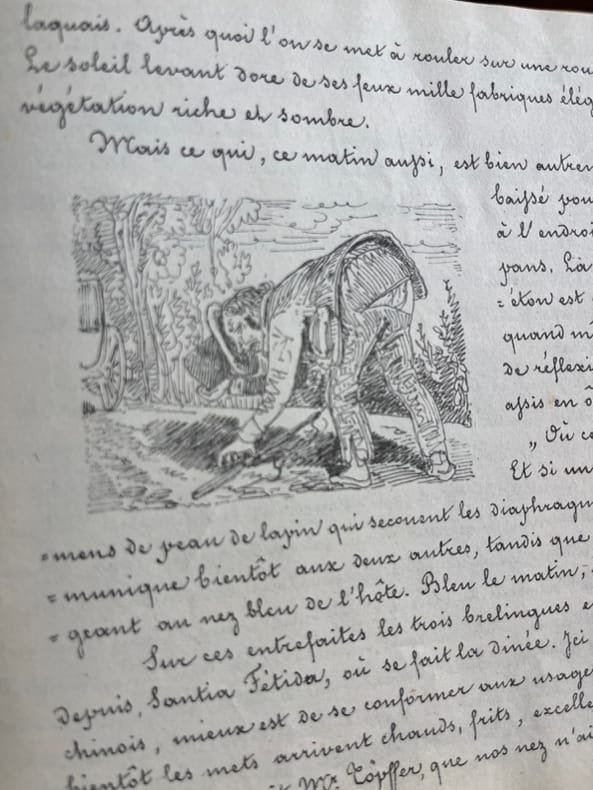 laquais. Après quoi l'on se met à rouler sur une rou
Le soleil levant dore de ses feux mille fabriques élég
végétation riche et sombre.
Mais ce qui, ce matin aussi, est bien autrem
baissé pou
à l'endroi
pans. Là
=éton est
quand m
de réflexi
assis en
„ Où c
Et si un
=mens de peau de lapin qui secouent les diaphragm
=munique bientôt aux deux autres, tandis que
=geant au nez bleu de l'hôte. Bleu le matin,
Sur ces entrefaites les trois brelingues e
depuis, Santia Fétida, où se fait la dinée. Ici
chinois, mieux est de se conformer aux usages
bientôt les mets arrivent chauds, frits, excelle
Mr. Töpffer, que nos nez n'ai